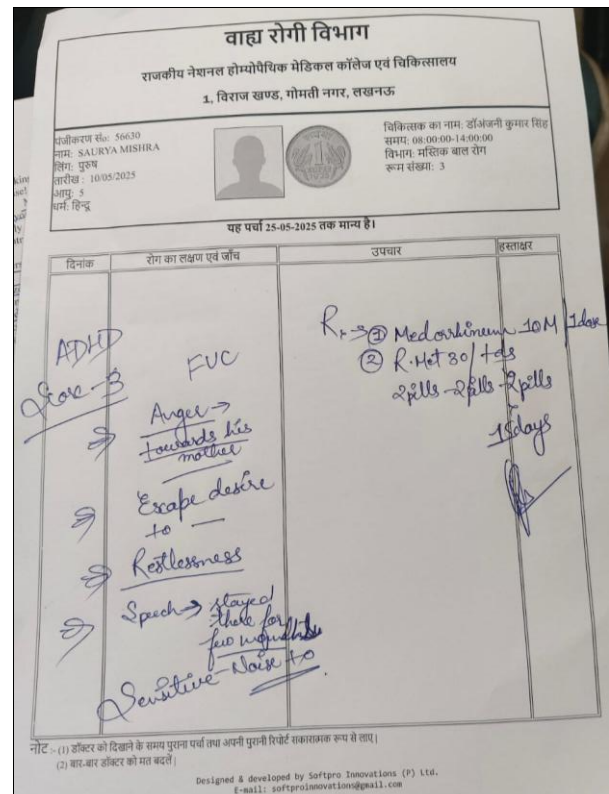 वाह्य रोगी विभाग
राजकीय नेशनल होम्योपैथिक मेडिकल कॉलेज एवं चिकित्सालय
1, विराज खण्ड, गोमती नगर, लखनऊ
पंजीकरण सं०: 56630
नाम: SAURYA MISHRA
लिंग: पुरुष
तारीख : 10/05/2025
आयु: 5
धर्म: हिन्दू
चिकित्सक का नाम: डॉअंजनी कुमार सिंह
समय: 08:00:00-14:00:00
विभाग: मस्तिक बाल रोग
रूम संख्या: 3
यह पर्चा 25-05-2025 तक मान्य है।
दिनांक रोग का लक्षण एवं जाँच उपचार हस्ताक्षर
ADHD
Score-3
FUC
Anger →
towards his
mother
Escape desire
to —
Restlessness
Speech → stayed
there for
few months
Sensitive-Noise to
Rx → ① Medorrhinum 10M/1dose
② R.Met 30/tds
2pills-2pills-2pills
15days
नोट :- (1) डॉक्टर को दिखाने के समय पुराना पर्चा तथा अपनी पुरानी रिपोर्ट सकारात्मक रूप से लाए|
(2) बार-बार डॉक्टर को मत बदलें|
Designed & developed by Softpro Innovations (P) Ltd.
E-mail: softproinnovations@gmail.com